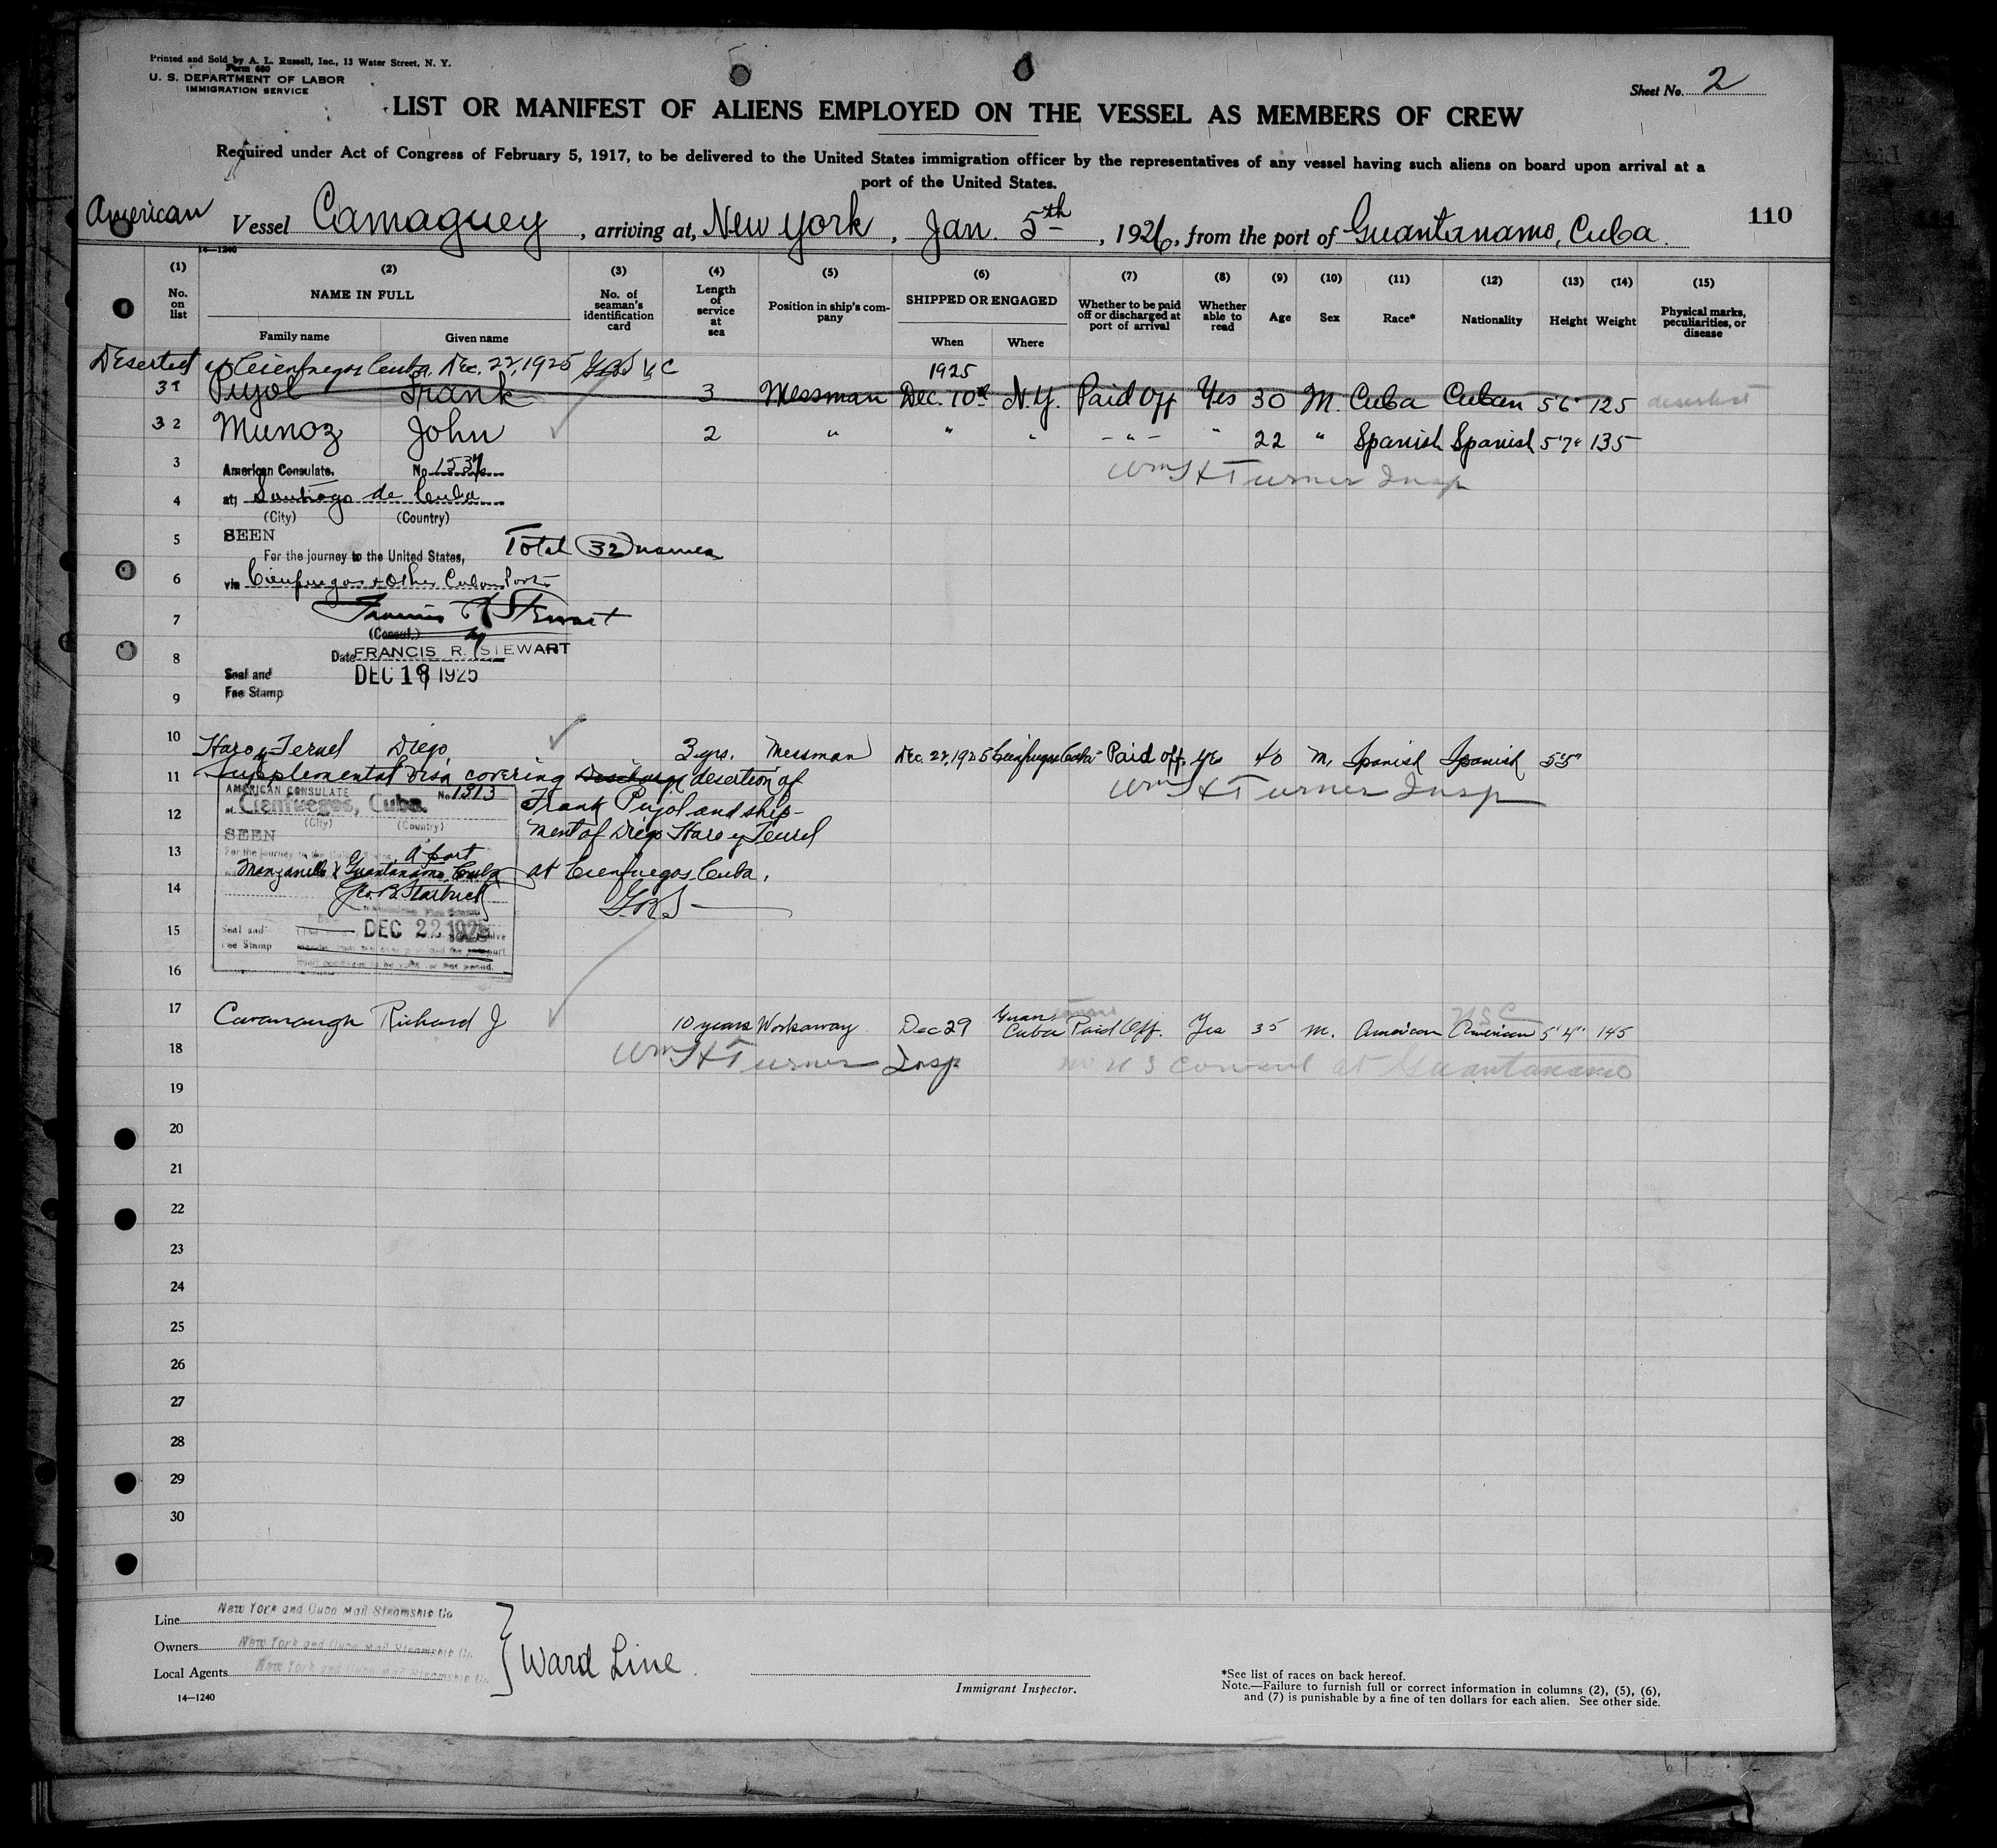 Printed and Sold by A. L. Russell, Inc., 13 Water Street, N. Y.
Form 680
U. S. DEPARTMENT OF LABOR
IMMIGRATION SERVICE
Sheet No. 2
LIST OR MANIFEST OF ALIENS EMPLOYED ON THE VESSEL AS MEMBERS OF CREW
Required under Act of Congress of February 5, 1917, to be delivered to the United States immigration officer by the representatives of any vessel having such aliens on board upon arrival at a
port of the United States.
American Vessel Camaguey, arriving at, New York, Jan. 5th, 1926, from the port of Guantanamo, Cuba. 110
14—1240
(1) (2) (3) (4) (5) (6) (7) (8) (9) (10) (11) (12) (13) (14) (15)
No. on list
NAME IN FULL
Family name Given name
No. of seaman's identification card
Length of service at sea
Position in ship's company
SHIPPED OR ENGAGED
When Where
Whether to be paid off or discharged at port of arrival
Whether able to read
Age
Sex
Race*
Nationality
Height
Weight
Physical marks, peculiarities, or disease
Deserted at Cienfuegos Cuba, Dec. 22, 1925 GBS V. C
1925
31 Pujol Frank 3 Messman Dec. 10th N.Y. Paid Off Yes 30 M. Cuba Cuban 5 6" 125 deserted
32 Munoz John 2 " " " - " - " 22 " Spanish Spanish 5'7" 135
3 American Consulate, No. 1537
Wm H Turner Insp
4 at Santiago de Cuba
(City) (Country)
5 SEEN
For the journey to the United States,
Total 32 names
6 via Cienfuegos & Other Cuban Ports
7 Francis R Stewart
(Consul.)
8 Date FRANCIS R. STEWART
Seal and DEC 18 1925
9 Fee Stamp
10 Haro y Teruel Diego 3 yrs. Messman Dec. 22, 1925 Cienfuegos Cuba Paid off. Yes 40 M. Spanish Spanish 5 5"
11 Supplemental Visa covering Discharge desertion of
Wm H Turner Insp
AMERICAN CONSULATE No 1313
at Cienfuegos, Cuba.
(City) (Country)
12 Frank Pujol and ship-
ment of Diego Haro y Teurel
SEEN
13 For the journey to the United States
Manzanillo & Guantanamo, Cuba
at Cienfuegos, Cuba.
14 Geo. B. Starbuck
GBS
15 Seal and
Fee Stamp
DEC 22 1925
16
17 Cavanaugh Richard J 10 years Workaway Dec 29 Guan Cuba Paid Off. Yes 35 M. American American 5' 4" 145
U S C
18 Wm H Turner Insp
no U S Consul at Guantanamo
19
20
21
22
23
24
25
26
27
28
29
30
Line New York and Cuba Mail Steamship Co
Owners New York and Cuba Mail Steamship Co.
Local Agents New York and Cuba Mail Steamship Co.
Ward Line
14—1240
Immigrant Inspector.
*See list of races on back hereof.
Note.—Failure to furnish full or correct information in columns (2), (5), (6),
and (7) is punishable by a fine of ten dollars for each alien. See other side.